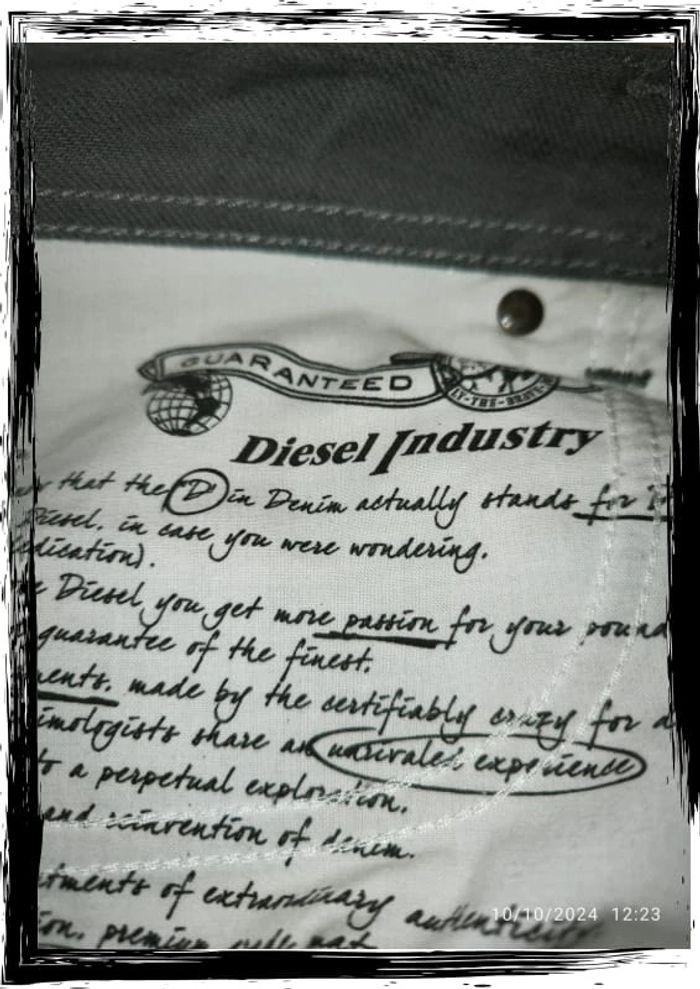 GUARANTEED
LY-THE-BRAVE
Diesel Industry
that the "D" in Denim actually stands for
Diesel. in case you were wondering.
edication).
Diesel, you get more passion for your pound
guarantee of the finest.
ents. made by the certifiably crazy for
imologists share an unrivaled experience
to a perpetual exploration.
and reinvention of denim.
tments of extraordinary authenticity
ion. premium
10/10/2024 12:23